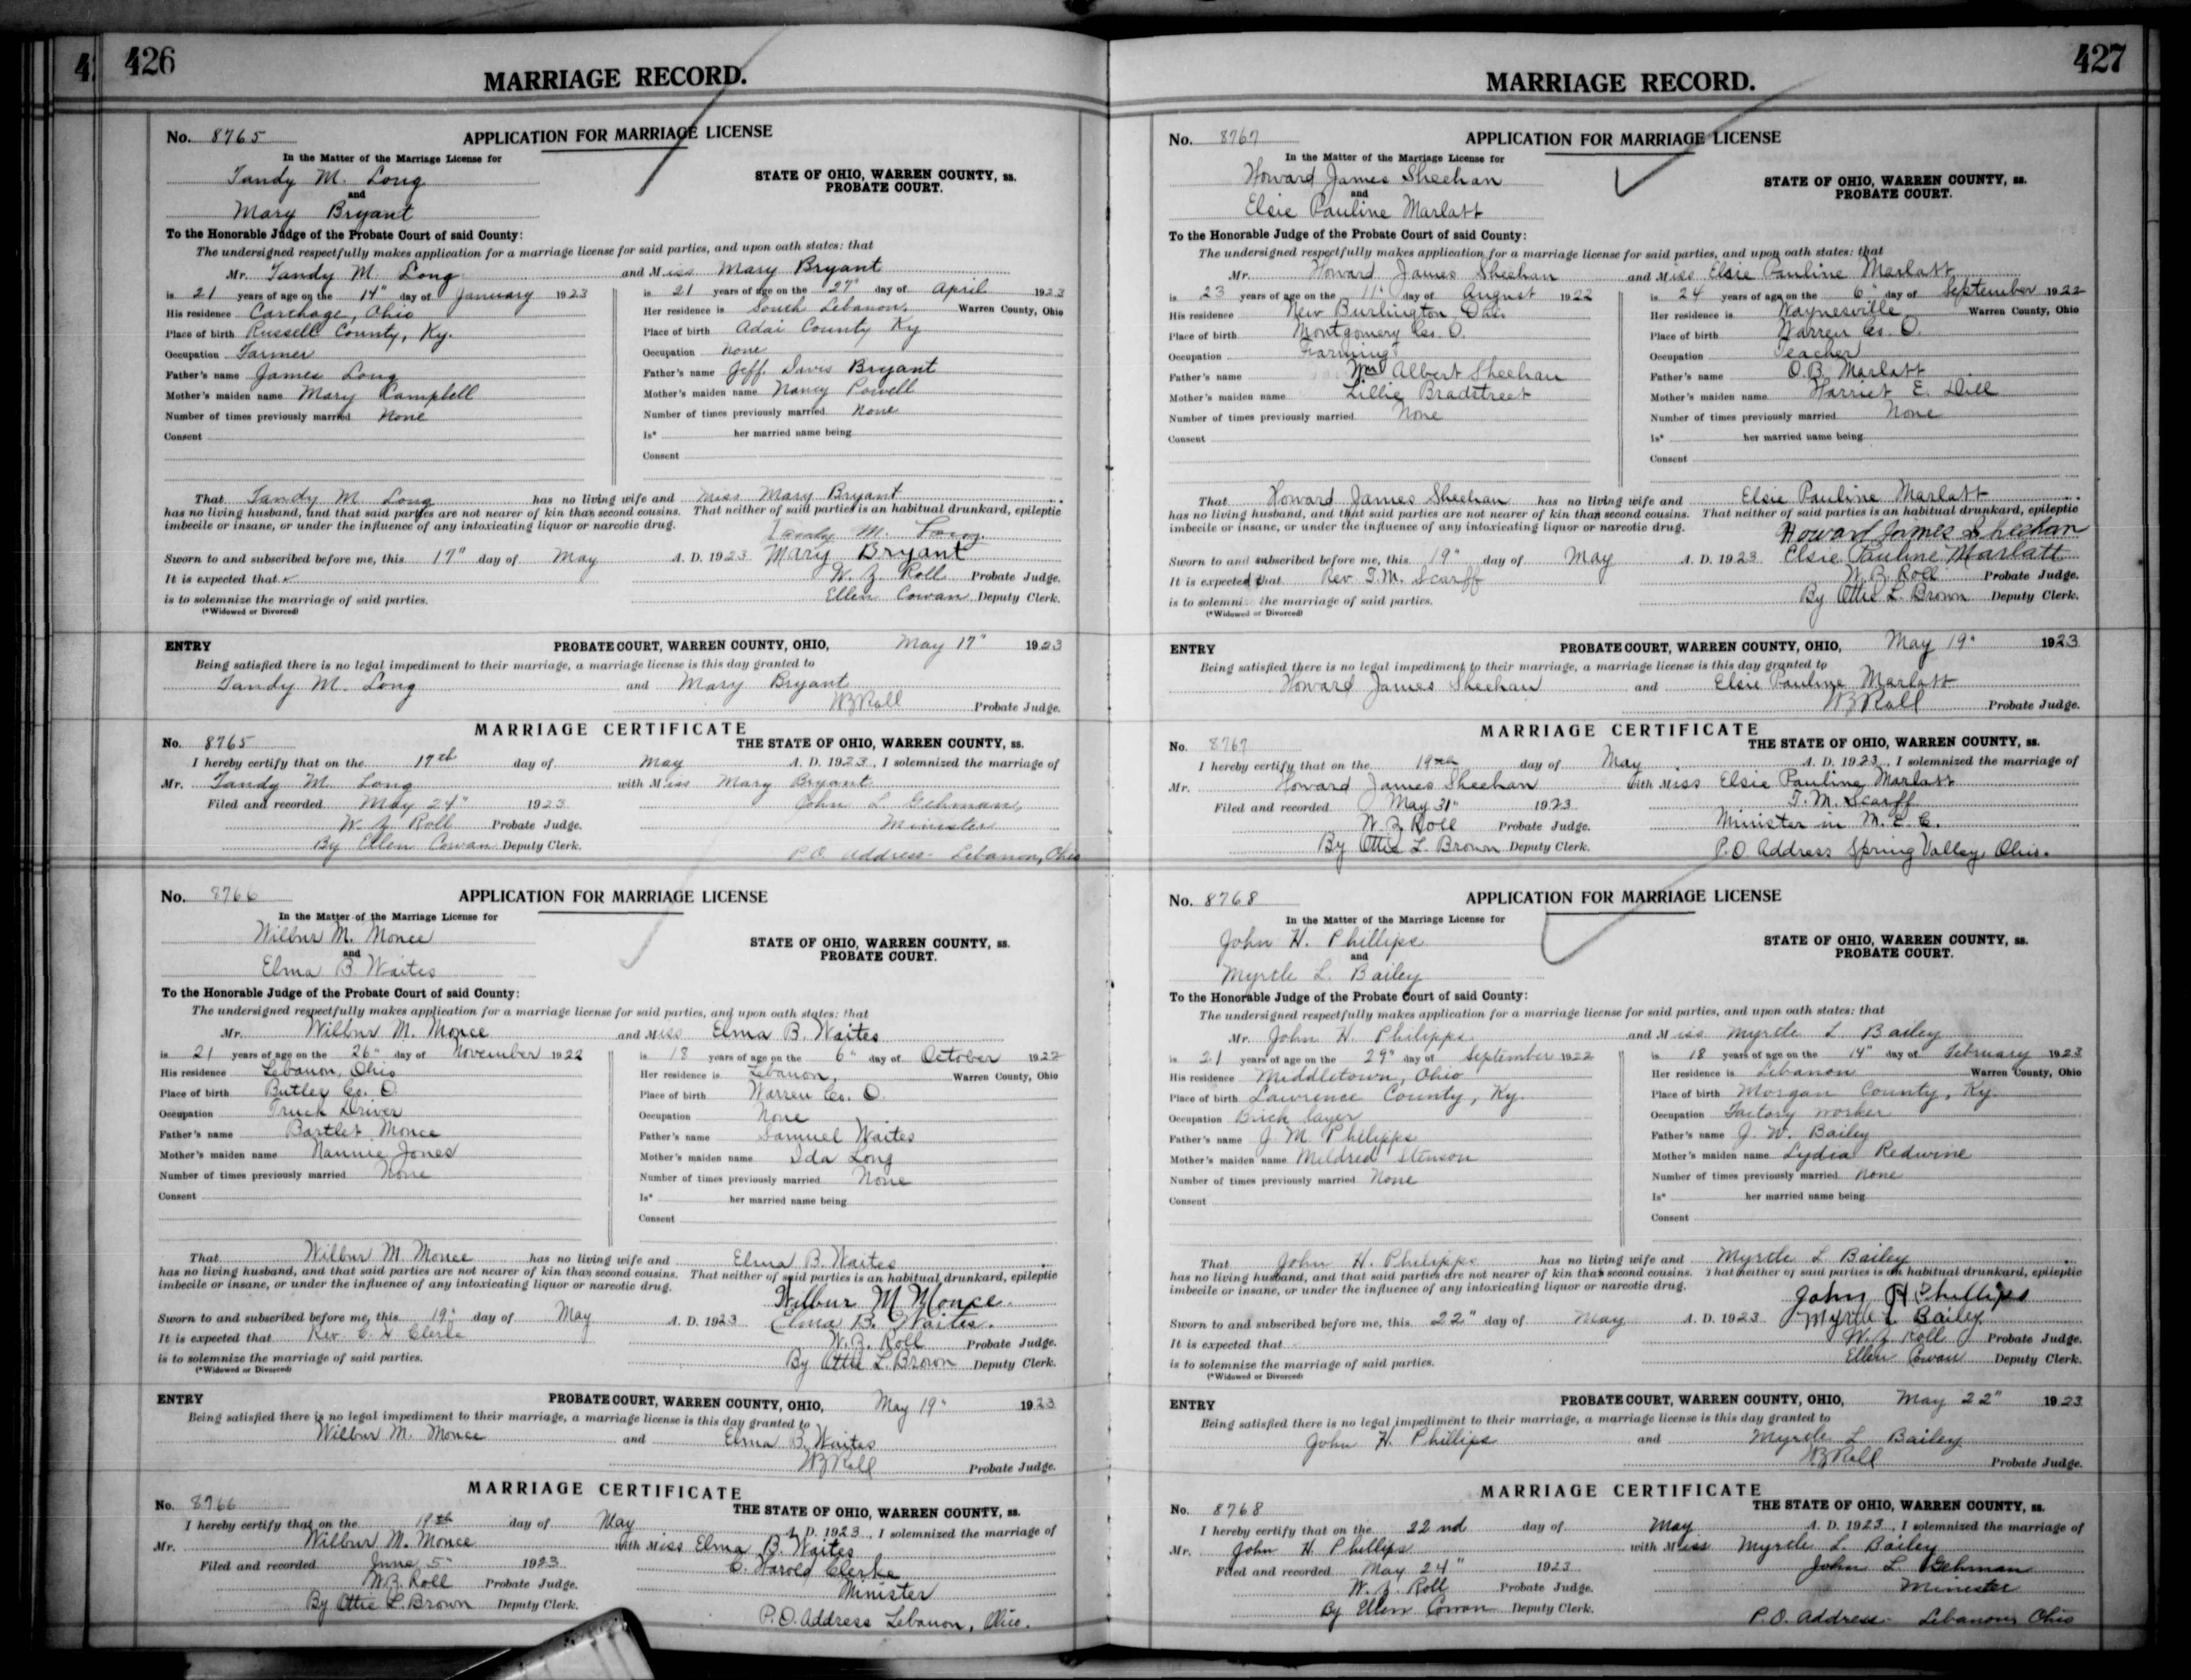 426
MARRIAGE RECORD.
No. 8765 APPLICATION FOR MARRIAGE LICENSE
In the Matter of the Marriage License for
Tandy M. Long
and
Mary Bryant
STATE OF OHIO, WARREN COUNTY, ss.
PROBATE COURT.
To the Honorable Judge of the Probate Court of said County:
The undersigned respectfully makes application for a marriage license for said parties, and upon oath states: that
Mr. Tandy M. Long and Miss Mary Bryant
is 21 years of age on the 14" day of January 1923
His residence Carthage, Ohio
Place of birth Russell County, Ky.
Occupation Farmer
Father's name James Long
Mother's maiden name Mary Campbell
Number of times previously married None
Consent
is 21 years of age on the 27" day of April 1923
Her residence is South Lebanon, Warren County, Ohio
Place of birth Adai County Ky
Occupation None
Father's name Jeff Davis Bryant
Mother's maiden name Nancy Powell
Number of times previously married None
Is* her married name being
Consent
That Tandy M. Long has no living wife and Miss Mary Bryant
has no living husband, and that said parties are not nearer of kin than second cousins. That neither of said parties is an habitual drunkard, epileptic
imbecile or insane, or under the influence of any intoxicating liquor or narcotic drug.
Tandy M. Long
Sworn to and subscribed before me, this 17" day of May A. D. 1923 Mary Bryant
It is expected that W. Z. Roll Probate Judge.
is to solemnize the marriage of said parties. Ellen Cowan Deputy Clerk.
(*Widowed or Divorced)
ENTRY PROBATE COURT, WARREN COUNTY, OHIO, May 17" 1923
Being satisfied there is no legal impediment to their marriage, a marriage license is this day granted to
Tandy M. Long and Mary Bryant
W Z Roll Probate Judge.
MARRIAGE CERTIFICATE
No. 8765 THE STATE OF OHIO, WARREN COUNTY, ss.
I hereby certify that on the 17th day of May A. D. 1923, I solemnized the marriage of
Mr. Tandy M. Long with Miss Mary Bryant
Filed and recorded May 24" 1923 John L. Gehman,
W. Z. Roll Probate Judge. Minister
By Ellen Cowan Deputy Clerk. P.O. Address- Lebanon, Ohio
No. 8766 APPLICATION FOR MARRIAGE LICENSE
In the Matter of the Marriage License for
Wilbur M. Monce
and
Elma B. Waites
STATE OF OHIO, WARREN COUNTY, ss.
PROBATE COURT.
To the Honorable Judge of the Probate Court of said County:
The undersigned respectfully makes application for a marriage license for said parties, and upon oath states: that
Mr. Wilbur M. Monce and Miss Elma B. Waites
is 21 years of age on the 26" day of November 1922
His residence Lebanon, Ohio
Place of birth Butler Co. O.
Occupation Truck Driver
Father's name Bartlet Monce
Mother's maiden name Nannie Jones
Number of times previously married None
Consent
is 18 years of age on the 6" day of October 1922
Her residence is Lebanon, Warren County, Ohio
Place of birth Warren Co. O.
Occupation None
Father's name Samuel Waites
Mother's maiden name Ida Long
Number of times previously married None
Is* her married name being
Consent
That Wilbur M. Monce has no living wife and Elma B. Waites
has no living husband, and that said parties are not nearer of kin than second cousins. That neither of said parties is an habitual drunkard, epileptic
imbecile or insane, or under the influence of any intoxicating liquor or narcotic drug.
Wilbur M Monce
Sworn to and subscribed before me, this 19" day of May A. D. 1923 Elma B. Waites.
It is expected that Rev. C. H Clerke W. Z. Roll Probate Judge.
is to solemnize the marriage of said parties. By Ottie L. Brown Deputy Clerk.
(*Widowed or Divorced)
ENTRY PROBATE COURT, WARREN COUNTY, OHIO, May 19" 1923
Being satisfied there is no legal impediment to their marriage, a marriage license is this day granted to
Wilbur M. Monce and Elma B. Waites
W Z Roll Probate Judge.
MARRIAGE CERTIFICATE
No. 8766 THE STATE OF OHIO, WARREN COUNTY, ss.
I hereby certify that on the 19th day of May A. D. 1923, I solemnized the marriage of
Mr. Wilbur M. Monce with Miss Elma B. Waites
Filed and recorded June 5" 1923 C. Harold Clerke
W. Z. Roll Probate Judge. Minister
By Ottie L. Brown Deputy Clerk. P.O. Address Lebanon, Ohio.
427
MARRIAGE RECORD.
No. 8767 APPLICATION FOR MARRIAGE LICENSE
In the Matter of the Marriage License for
Howard James Sheehan
and
Elsie Pauline Marlatt
STATE OF OHIO, WARREN COUNTY, ss.
PROBATE COURT.
To the Honorable Judge of the Probate Court of said County:
The undersigned respectfully makes application for a marriage license for said parties, and upon oath states: that
Mr. Howard James Sheehan and Miss Elsie Pauline Marlatt
is 23 years of age on the 11" day of August 1922
His residence New Burlington, Ohio.
Place of birth Montgomery Co. O.
Occupation Farming
Father's name Wm Albert Sheehan
Mother's maiden name Lillie Bradstreet
Number of times previously married None
Consent
is 24 years of age on the 6" day of September 1922
Her residence is Waynesville Warren County, Ohio
Place of birth Warren Co. O.
Occupation Teacher
Father's name O.B. Marlatt
Mother's maiden name Harriet E. Dill
Number of times previously married None
Is* her married name being
Consent
That Howard James Sheehan has no living wife and Elsie Pauline Marlatt
has no living husband, and that said parties are not nearer of kin than second cousins. That neither of said parties is an habitual drunkard, epileptic
imbecile or insane, or under the influence of any intoxicating liquor or narcotic drug.
Howard James Sheehan
Sworn to and subscribed before me, this 19" day of May A. D. 1923 Elsie Pauline Marlatt
It is expected that Rev. T.M. Scarff W. Z. Roll Probate Judge.
is to solemnize the marriage of said parties. By Ottie L. Brown Deputy Clerk.
(*Widowed or Divorced)
ENTRY PROBATE COURT, WARREN COUNTY, OHIO, May 19" 1923
Being satisfied there is no legal impediment to their marriage, a marriage license is this day granted to
Howard James Sheehan and Elsie Pauline Marlatt
W Z Roll Probate Judge.
MARRIAGE CERTIFICATE
No. 8767 THE STATE OF OHIO, WARREN COUNTY, ss.
I hereby certify that on the 19th day of May A. D. 1923, I solemnized the marriage of
Mr. Howard James Sheehan with Miss Elsie Pauline Marlatt
Filed and recorded May 31" 1923 T. M. Scarff
W. Z. Roll Probate Judge. Minister in M. E. C.
By Ottie L. Brown Deputy Clerk. P.O Address Spring Valley, Ohio.
No. 8768 APPLICATION FOR MARRIAGE LICENSE
In the Matter of the Marriage License for
John H. Phillips
and
Myrtle L. Bailey
STATE OF OHIO, WARREN COUNTY, ss.
PROBATE COURT.
To the Honorable Judge of the Probate Court of said County:
The undersigned respectfully makes application for a marriage license for said parties, and upon oath states: that
Mr. John H. Philipps and Miss Myrtle L Bailey
is 21 years of age on the 29" day of September 1922
His residence Middletown, Ohio
Place of birth Lawrence County, Ky.
Occupation Brick layer
Father's name J. M Philipps
Mother's maiden name Mildred Stenson
Number of times previously married None
Consent
is 18 years of age on the 14" day of February 1923
Her residence is Lebanon Warren County, Ohio
Place of birth Morgan County, Ky.
Occupation Factory worker
Father's name J. W. Bailey
Mother's maiden name Lydia Redwine
Number of times previously married None
Is* her married name being
Consent
That John H. Philipps has no living wife and Myrtle L. Bailey
has no living husband, and that said parties are not nearer of kin than second cousins. That neither of said parties is an habitual drunkard, epileptic
imbecile or insane, or under the influence of any intoxicating liquor or narcotic drug.
John H Phillips
Sworn to and subscribed before me, this 22" day of May A. D. 1923 Myrtle L Bailey
It is expected that W. Z. Roll Probate Judge.
is to solemnize the marriage of said parties. Ellen Cowan Deputy Clerk.
(*Widowed or Divorced)
ENTRY PROBATE COURT, WARREN COUNTY, OHIO, May 22" 1923
Being satisfied there is no legal impediment to their marriage, a marriage license is this day granted to
John H. Phillips and Myrtle L Bailey
W Z Roll Probate Judge.
MARRIAGE CERTIFICATE
No. 8768 THE STATE OF OHIO, WARREN COUNTY, ss.
I hereby certify that on the 22nd day of May A. D. 1923, I solemnized the marriage of
Mr. John H Phillips with Miss Myrtle L Bailey
Filed and recorded May 24" 1923 John L. Gehman
W. Z. Roll Probate Judge. Minister
By Ellen Cowan Deputy Clerk. P.O. Address- Lebanon, Ohio